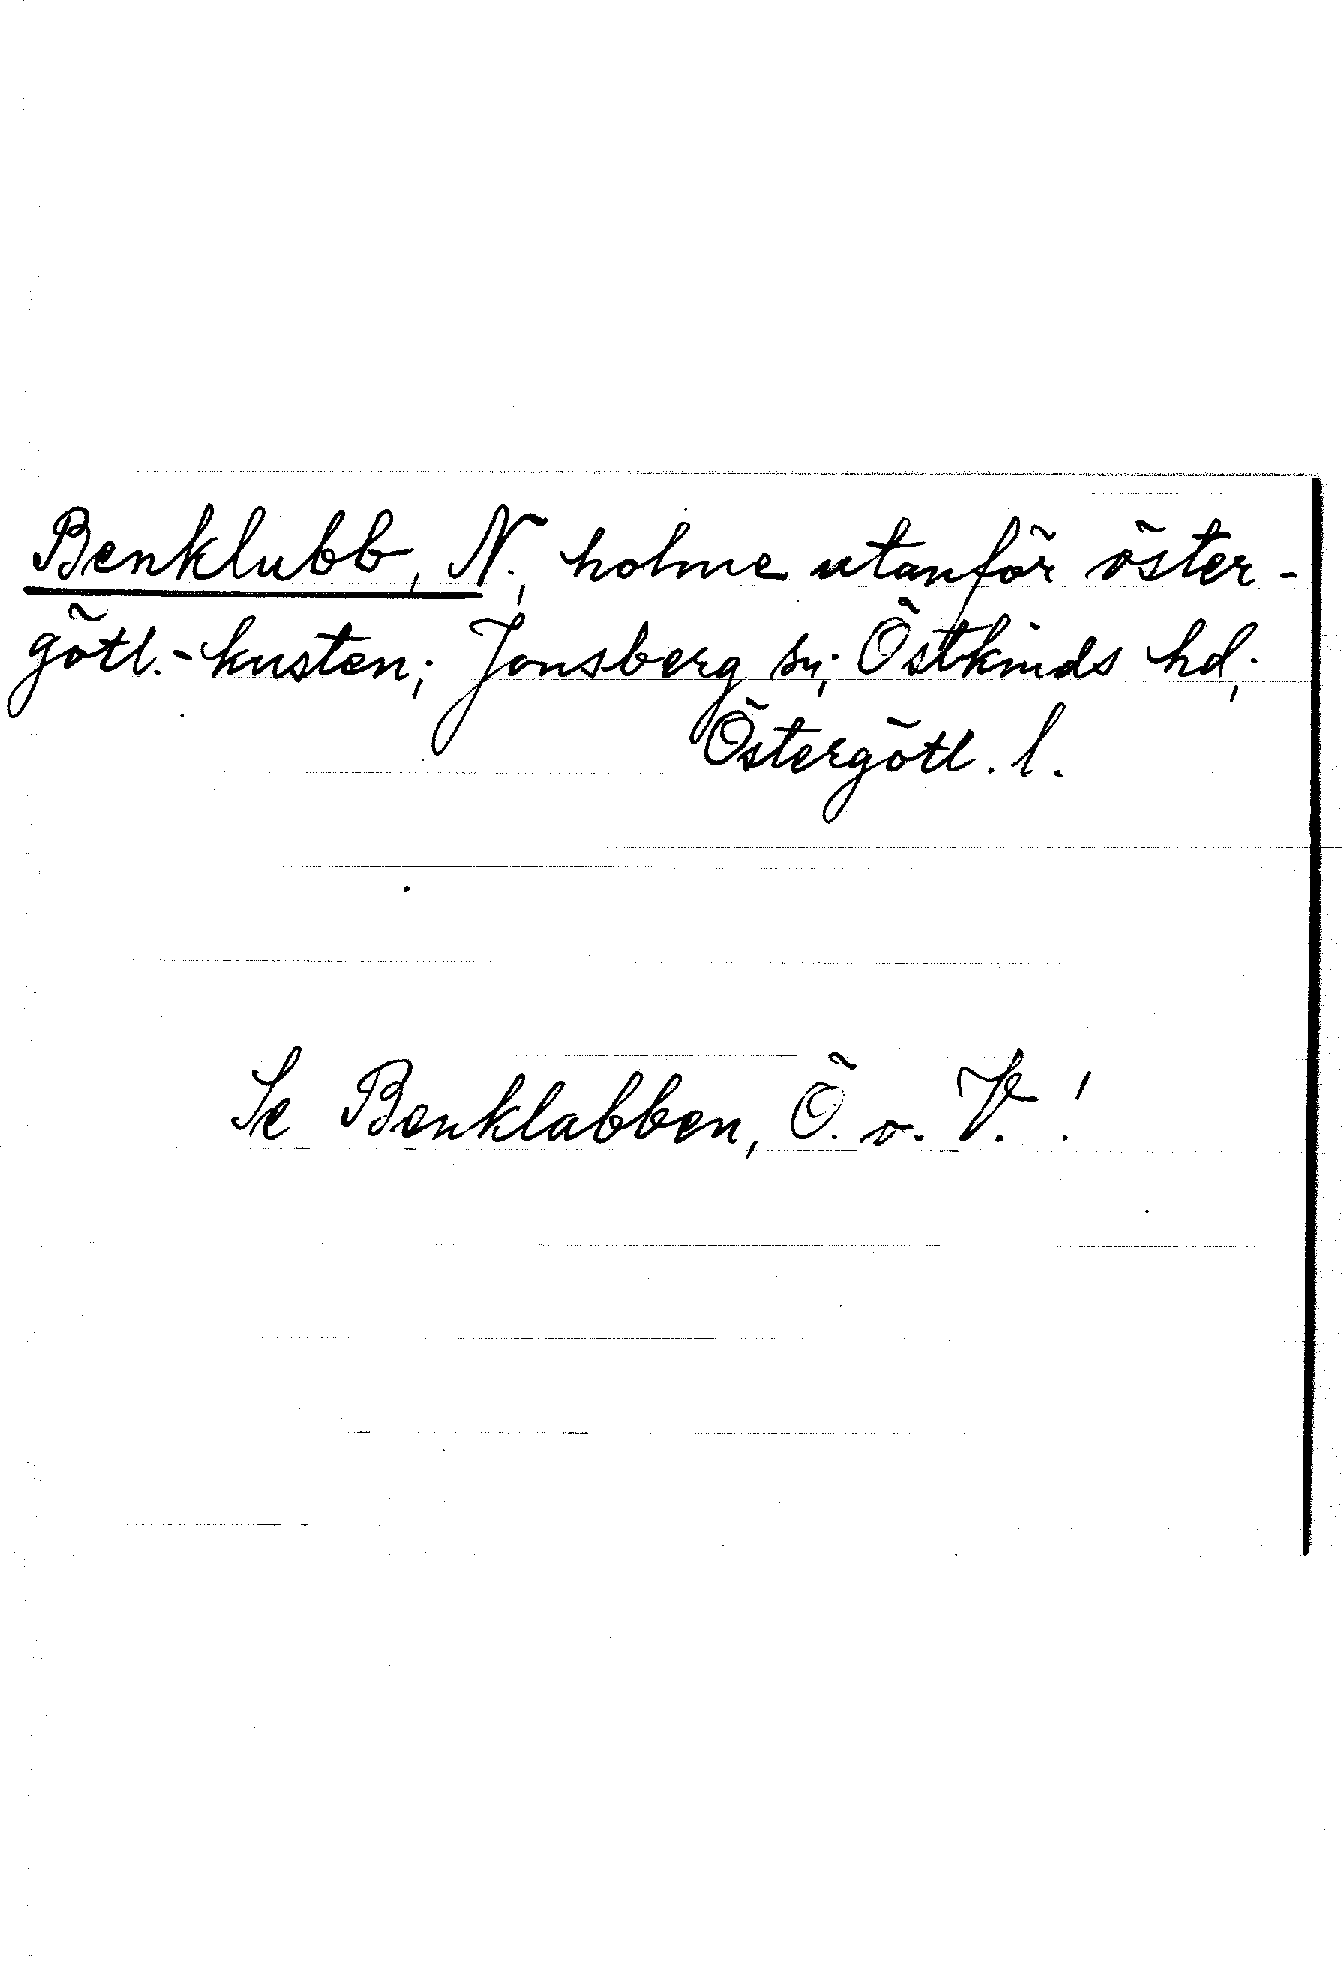 Benklubb, N., holme utanför öster-
götl.-kusten; Jonsberg sn; Östkinds hd;
Östergötl. l.
Se Benklabben, Ö. o. V.!